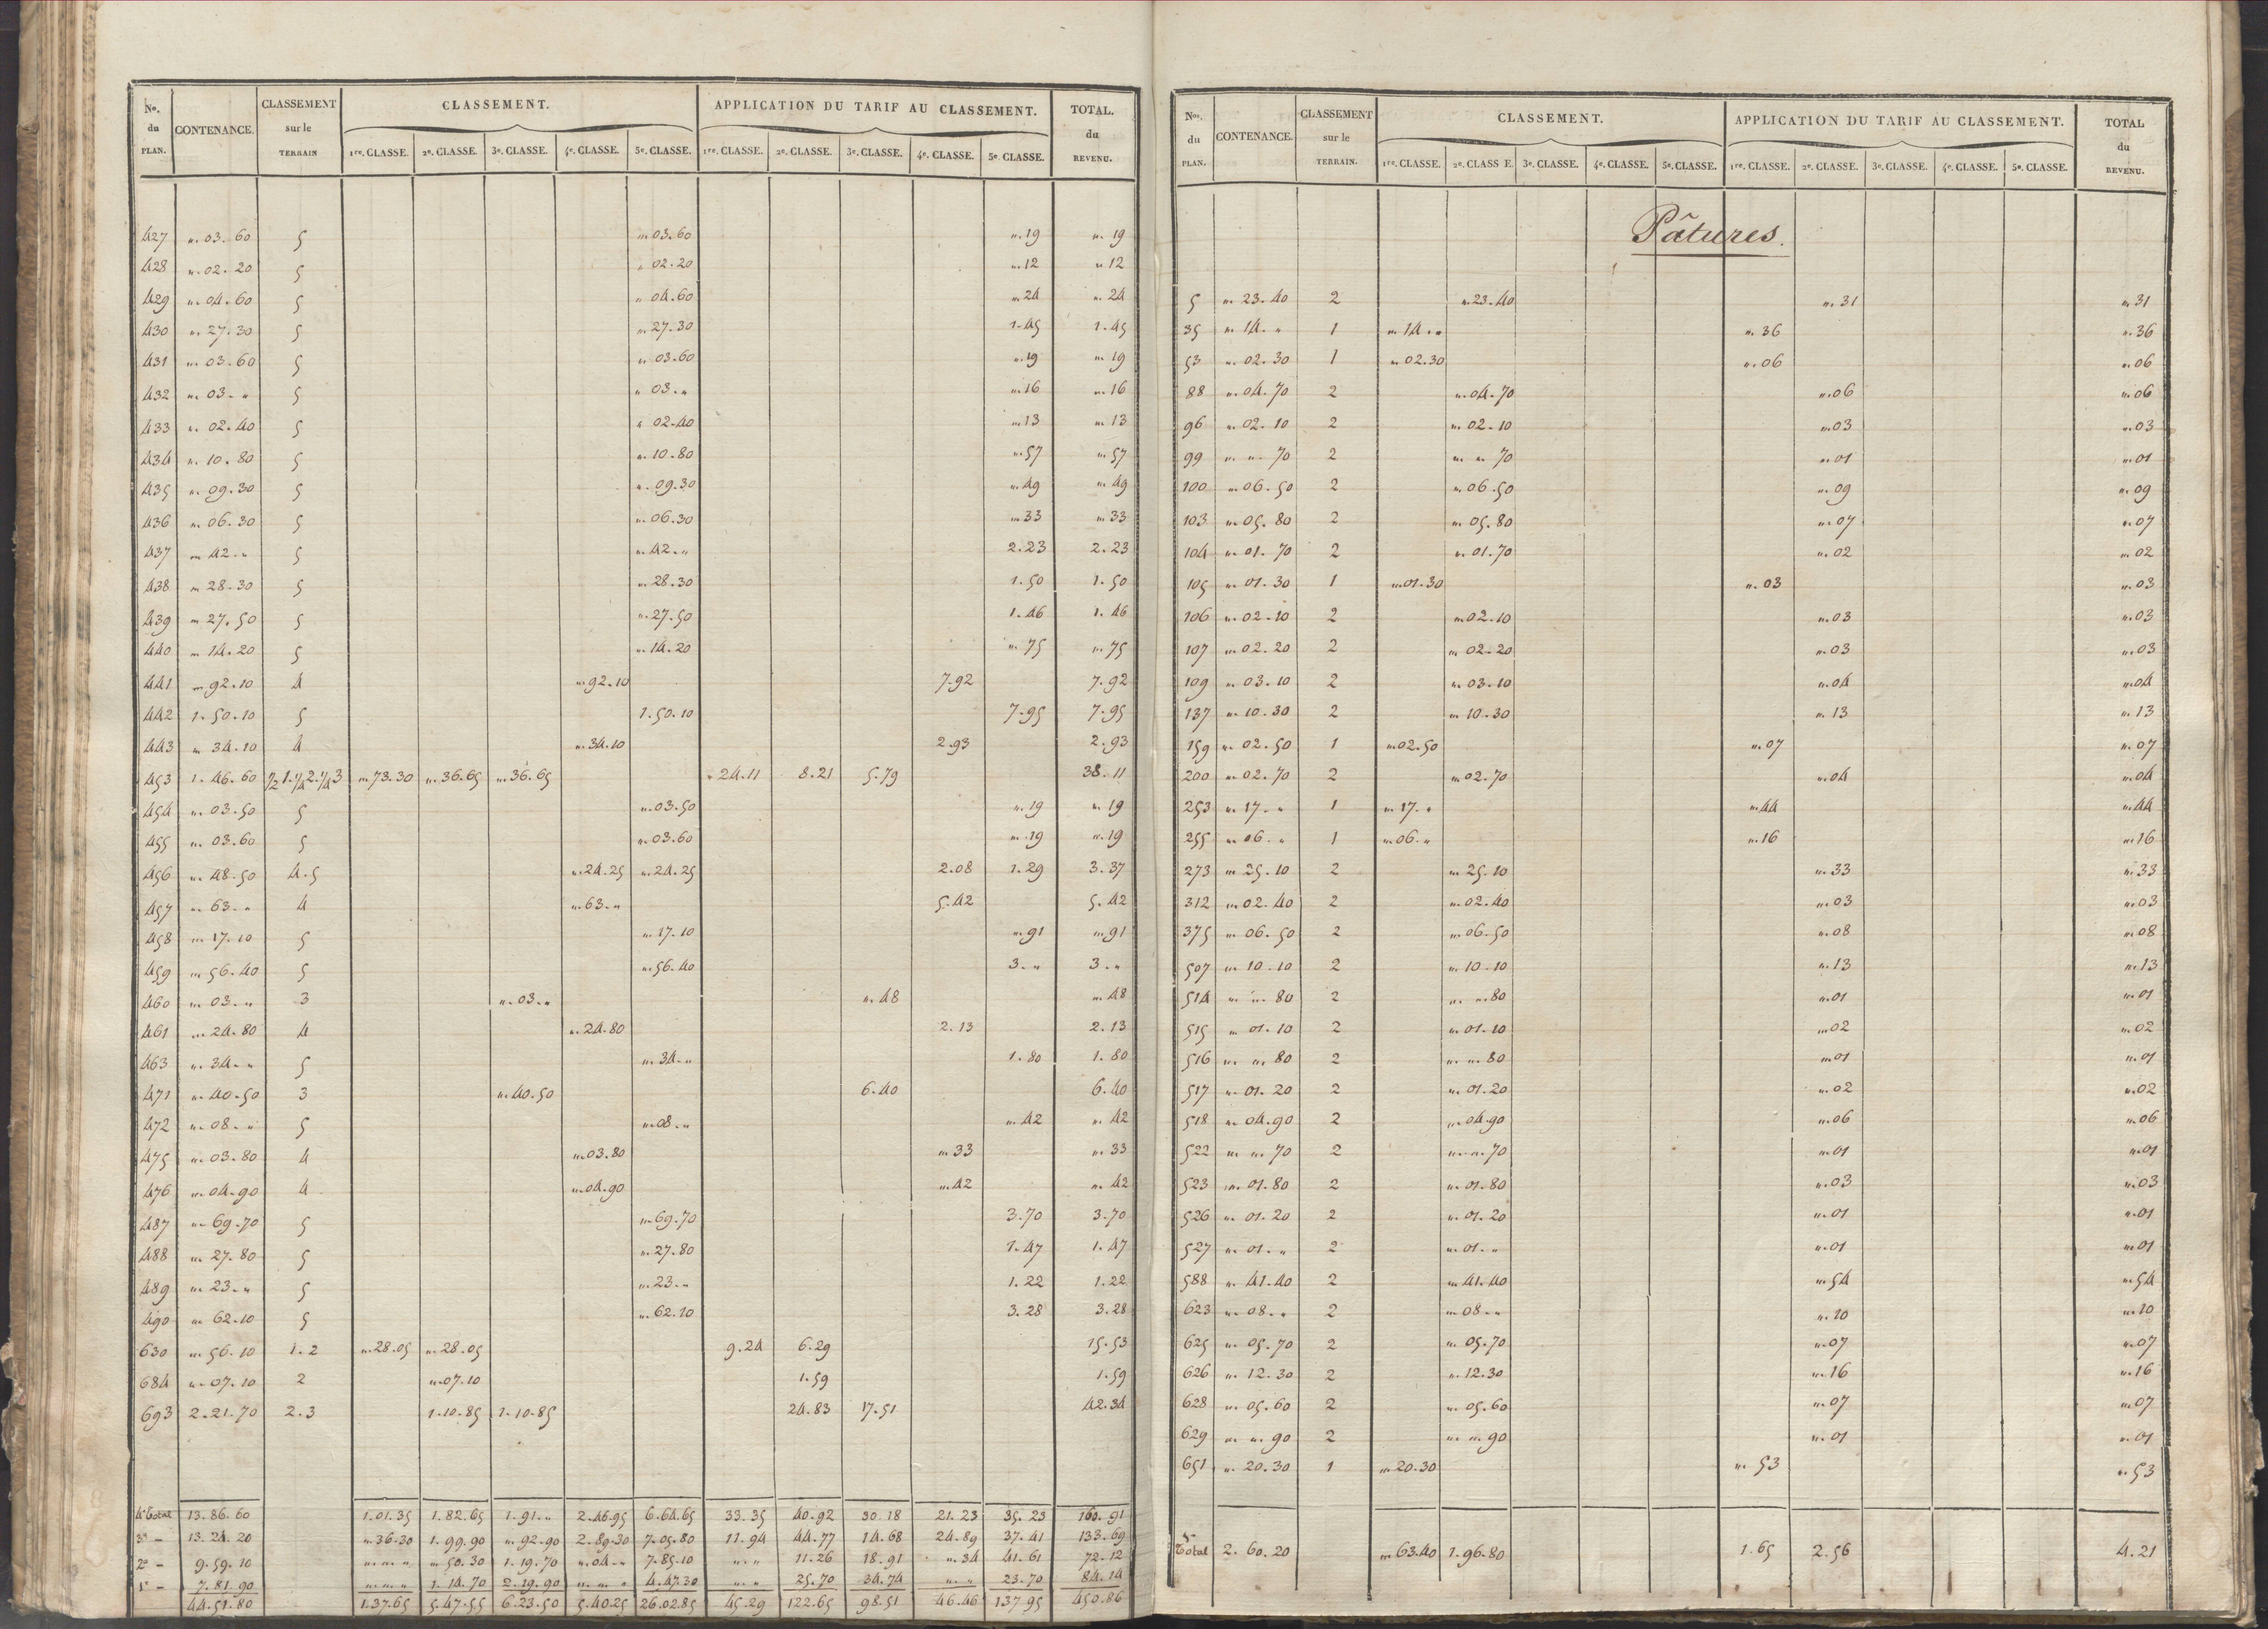 Nos. du PLAN. CONTENANCE. CLASSEMENT sur le TERRAIN CLASSEMENT. APPLICATION DU TARIF AU CLASSEMENT. TOTAL. du REVENU.
1re. CLASSE. 2e. CLASSE. 3e. CLASSE. 4e. CLASSE. 5e. CLASSE. 1re. CLASSE. 2e. CLASSE. 3e. CLASSE. 4e. CLASSE. 5e. CLASSE.
427 ". 03. 60 5 ". 03. 60 ". 19 ". 19
428 ". 02. 20 5 ". 02. 20 ". 12 ". 12
429 ". 04. 60 5 ". 04. 60 ". 24 ". 24
430 ". 27. 30 5 ". 27. 30 1. 45 1. 45
431 ". 03. 60 5 ". 03. 60 ". 19 ". 19
432 ". 03. " 5 ". 03. " ". 16 ". 16
433 ". 02. 40 5 ". 02. 40 ". 13 ". 13
434 ". 10. 80 5 ". 10. 80 ". 57 ". 57
435 ". 09. 30 5 ". 09. 30 ". 49 ". 49
436 ". 06. 30 5 ". 06. 30 ". 33 ". 33
437 ". 42. " 5 ". 42. " 2. 23 2. 23
438 ". 28. 30 5 ". 28. 30 1. 50 1. 50
439 ". 27. 50 5 ". 27. 50 1. 46 1. 46
440 ". 14. 20 5 ". 14. 20 ". 75 ". 75
441 ". 92. 10 4 ". 92. 10 7. 92 7. 92
442 1. 50. 10 5 1. 50. 10 7. 95 7. 95
443 ". 34. 10 4 ". 34. 10 2. 93 2. 93
453 1. 46. 60 1/2 1. 1/4 2. 1/4 3 ". 73. 30 ". 36. 65 ". 36. 65 ". 24. 11 8. 21 5. 79 38. 11
454 ". 03. 50 5 ". 03. 50 ". 19 ". 19
455 ". 03. 60 5 ". 03. 60 ". 19 ". 19
456 ". 48. 50 4. 5 ". 24. 25 ". 24. 25 2. 08 1. 29 3. 37
457 ". 63. " 4 ". 63. " 5. 42 5. 42
458 ". 17. 10 5 ". 17. 10 ". 91 ". 91
459 ". 56. 40 5 ". 56. 40 3. " 3. "
460 ". 03. " 3 ". 03. " ". 48 ". 48
461 ". 24. 80 4 ". 24. 80 2. 13 2. 13
463 ". 34. " 5 ". 34. " 1. 80 1. 80
471 ". 40. 50 3 ". 40. 50 6. 40 6. 40
472 ". 08. " 5 ". 08. " ". 42 ". 42
475 ". 03. 80 4 ". 03. 80 ". 33 ". 33
476 ". 04. 90 4 ". 04. 90 ". 42 ". 42
487 ". 69. 70 5 ". 69. 70 3. 70 3. 70
488 ". 27. 80 5 ". 27. 80 1. 47 1. 47
489 ". 23. " 5 ". 23. " 1. 22 1. 22
490 ". 62. 10 5 ". 62. 10 3. 28 3. 28
630 ". 56. 10 1. 2 ". 28. 05 ". 28. 05 9. 24 6. 29 15. 53
684 ". 07. 10 2 ". 07. 10 1. 59 1. 59
693 2. 21. 70 2. 3 1. 10. 85 1. 10. 85 24. 83 17. 51 42. 34
4e Total 13. 86. 60 1. 01. 35 1. 82. 65 1. 91. " 2. 46. 95 6. 64. 65 33. 35 40. 92 30. 18 21. 23 35. 23 160. 91
3e - 13. 24. 20 ". 36. 30 1. 99. 90 ". 92. 90 2. 89. 30 7. 05. 80 11. 94 44. 77 14. 68 24. 89 37. 41 133. 69
2e - 9. 59. 10 ". ". " ". 50. 30 1. 19. 70 ". 04. " 7. 85. 10 ". " 11. 26 18. 91 ". 34 41. 61 72. 12
1r - 7. 81. 90 ". ". " 1. 14. 70 2. 19. 90 ". ". " 4. 47. 30 ". " 25. 70 34. 74 ". " 23. 70 84. 14
44. 51. 80 1. 37. 65 5. 47. 55 6. 23. 50 5. 40. 25 26. 02. 85 45. 29 122. 65 98. 51 46. 46 137. 95 450. 86
Nos. du PLAN. CONTENANCE. CLASSEMENT sur le TERRAIN. CLASSEMENT. APPLICATION DU TARIF AU CLASSEMENT. TOTAL du REVENU.
1re. CLASSE. 2e. CLASS E. 3e. CLASSE. 4e. CLASSE. 5e. CLASSE. 1re. CLASSE. 2e. CLASSE. 3e. CLASSE. 4e. CLASSE. 5e. CLASSE.
Pâtures.
5 ". 23. 40 2 ". 23. 40 ". 31 ". 31
35 ". 14. " 1 ". 14. " ". 36 ". 36
53 ". 02. 30 1 ". 02. 30 ". 06 ". 06
88 ". 04. 70 2 ". 04. 70 ". 06 ". 06
96 ". 02. 10 2 ". 02. 10 ". 03 ". 03
99 ". ". 70 2 ". ". 70 ". 01 ". 01
100 ". 06. 50 2 ". 06. 50 ". 09 ". 09
103 ". 05. 80 2 ". 05. 80 ". 07 ". 07
104 ". 01. 70 2 ". 01. 70 ". 02 ". 02
105 ". 01. 30 1 ". 01. 30 ". 03 ". 03
106 ". 02. 10 2 ". 02. 10 ". 03 ". 03
107 ". 02. 20 2 ". 02. 20 ". 03 ". 03
109 ". 03. 10 2 ". 03. 10 ". 04 ". 04
137 ". 10. 30 2 ". 10. 30 ". 13 ". 13
159 ". 02. 50 1 ". 02. 50 ". 07 ". 07
200 ". 02. 70 2 ". 02. 70 ". 04 ". 04
253 ". 17. " 1 ". 17. " ". 44 ". 44
255 ". 06. " 1 ". 06. " ". 16 ". 16
273 ". 25. 10 2 ". 25. 10 ". 33 ". 33
312 ". 02. 40 2 ". 02. 40 ". 03 ". 03
375 ". 06. 50 2 ". 06. 50 ". 08 ". 08
507 ". 10. 10 2 ". 10. 10 ". 13 ". 13
514 ". ". 80 2 ". ". 80 ". 01 ". 01
515 ". 01. 10 2 ". 01. 10 ". 02 ". 02
516 ". ". 80 2 ". ". 80 ". 01 ". 01
517 ". 01. 20 2 ". 01. 20 ". 02 ". 02
518 ". 04. 90 2 ". 04. 90 ". 06 ". 06
522 ". ". 70 2 ". ". 70 ". 01 ". 01
523 ". 01. 80 2 ". 01. 80 ". 03 ". 03
526 ". 01. 20 2 ". 01. 20 ". 01 ". 01
527 ". 01. " 2 ". 01. " ". 01 ". 01
588 ". 41. 40 2 ". 41. 40 ". 54 ". 54
623 ". 08. " 2 ". 08. " ". 10 ". 10
625 ". 05. 70 2 ". 05. 70 ". 07 ". 07
626 ". 12. 30 2 ". 12. 30 ". 16 ". 16
628 ". 05. 60 2 ". 05. 60 ". 07 ". 07
629 ". ". 90 2 ". ". 90 ". 01 ". 01
651 ". 20. 30 1 ". 20. 30 ". 53 ". 53
Total 2. 60. 20 ". 63. 40 1. 96. 80 1. 65 2. 56 4. 21